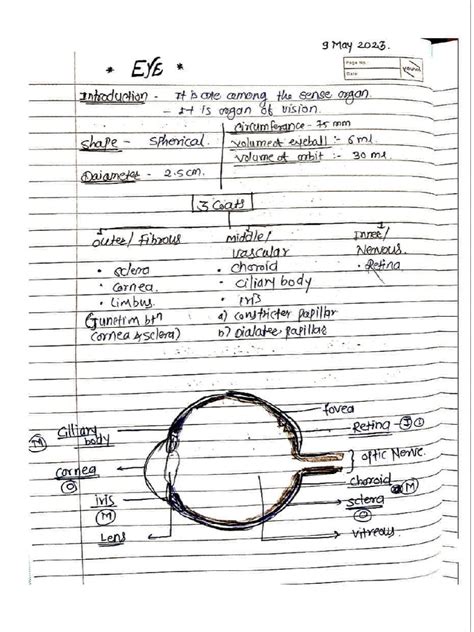 9 May 2023.
* EYE *
Page No.
Date
Introduction - It is one among the sense organ.
- It is organ of vision.
Circumference - 75 mm
Shape - Spherical.
Volume of eyeball :- 6 ml
Volume of orbit :- 30 ml
Daiameter - 2.5 cm.
3 Coats
Outer / Fibrous
Middle /
Vascular
Inner /
Nervous.
• Sclera
• Cornea.
• Limbus.
(Junction btn
Cornea & Sclera)
• Choroid
• Ciliary body
• Iris
a) Constricter papillar
b) Dialatee papillar
• Retina
Ciliary
body
M
Cornea
O
iris
M
Lens
fovea
Retina - I
Optic Nerve.
Choroid
M
Sclera
O
Vitreous